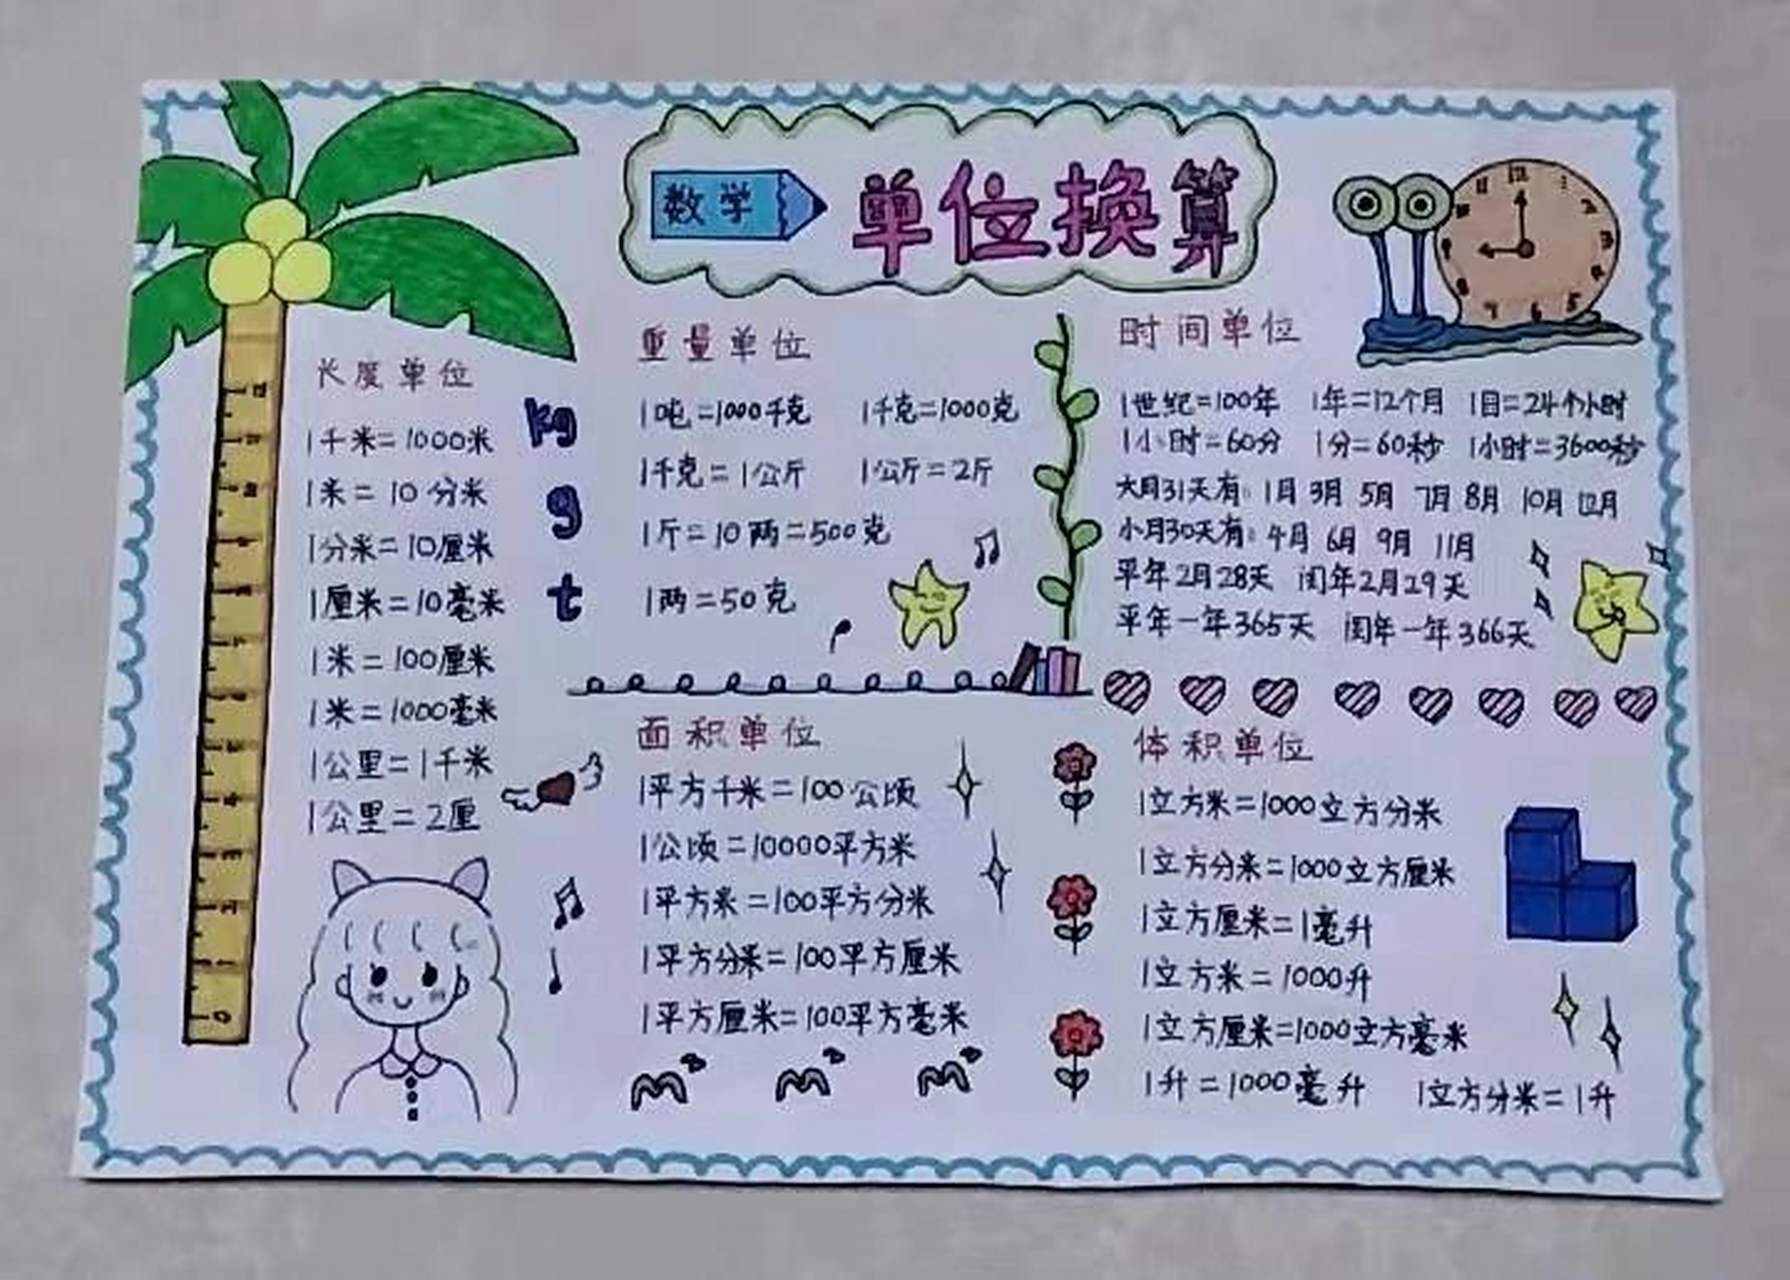 数学 单位换算
长度单位
1千米=1000米
1米=10分米
1分米=10厘米
1厘米=10毫米
1米=100厘米
1米=1000毫米
1公里=1千米
1公里=2厘
kg
g
t
重量单位
1吨=1000千克 1千克=1000克
1千克=1公斤 1公斤=2斤
1斤=10两=500克
1两=50克
时间单位
1世纪=100年 1年=12个月 1日=24个小时
1小时=60分 1分=60秒 1小时=3600秒
大月31天有:1月 3月 5月 7月 8月 10月 12月
小月30天有:4月 6月 9月 11月
平年2月28天 闰年2月29天
平年一年365天 闰年一年366天
面积单位
1平方千米=100公顷
1公顷=10000平方米
1平方米=100平方分米
1平方分米=100平方厘米
1平方厘米=100平方毫米
m² m² m²
体积单位
1立方米=1000立方分米
1立方分米=1000立方厘米
1立方厘米=1毫升
1立方米=1000升
1立方厘米=1000立方毫米
1升=1000毫升 1立方分米=1升